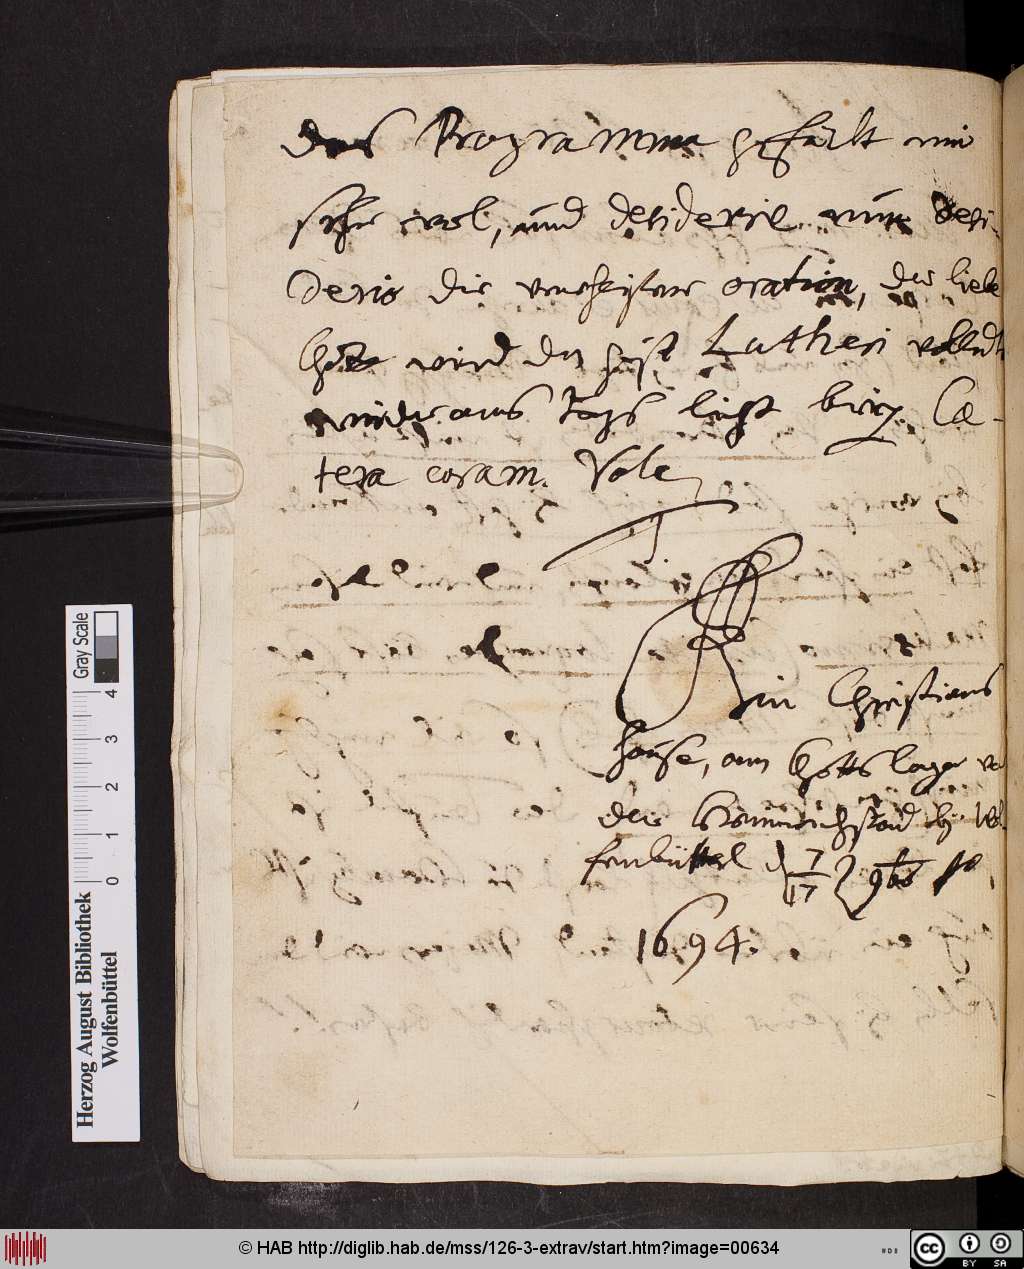 das Programma gefält mir
sehr wol, und desiderire nur desi-
deris die oration, der liebe
Gott wird den geist Lutheri vollendts
wieder ans tags licht Cæ-
tera coram. Vale
in Christians
hause, am Gotts lager vor
der Heinrichstadt by Wol-
fenbüttel d 7/17 9bris
1694.
Herzog August Bibliothek
Wolfenbüttel
Gray Scale
0 1 2 3 4
© HAB http://diglib.hab.de/mss/126-3-extrav/start.htm?image=00634
CC BY SA